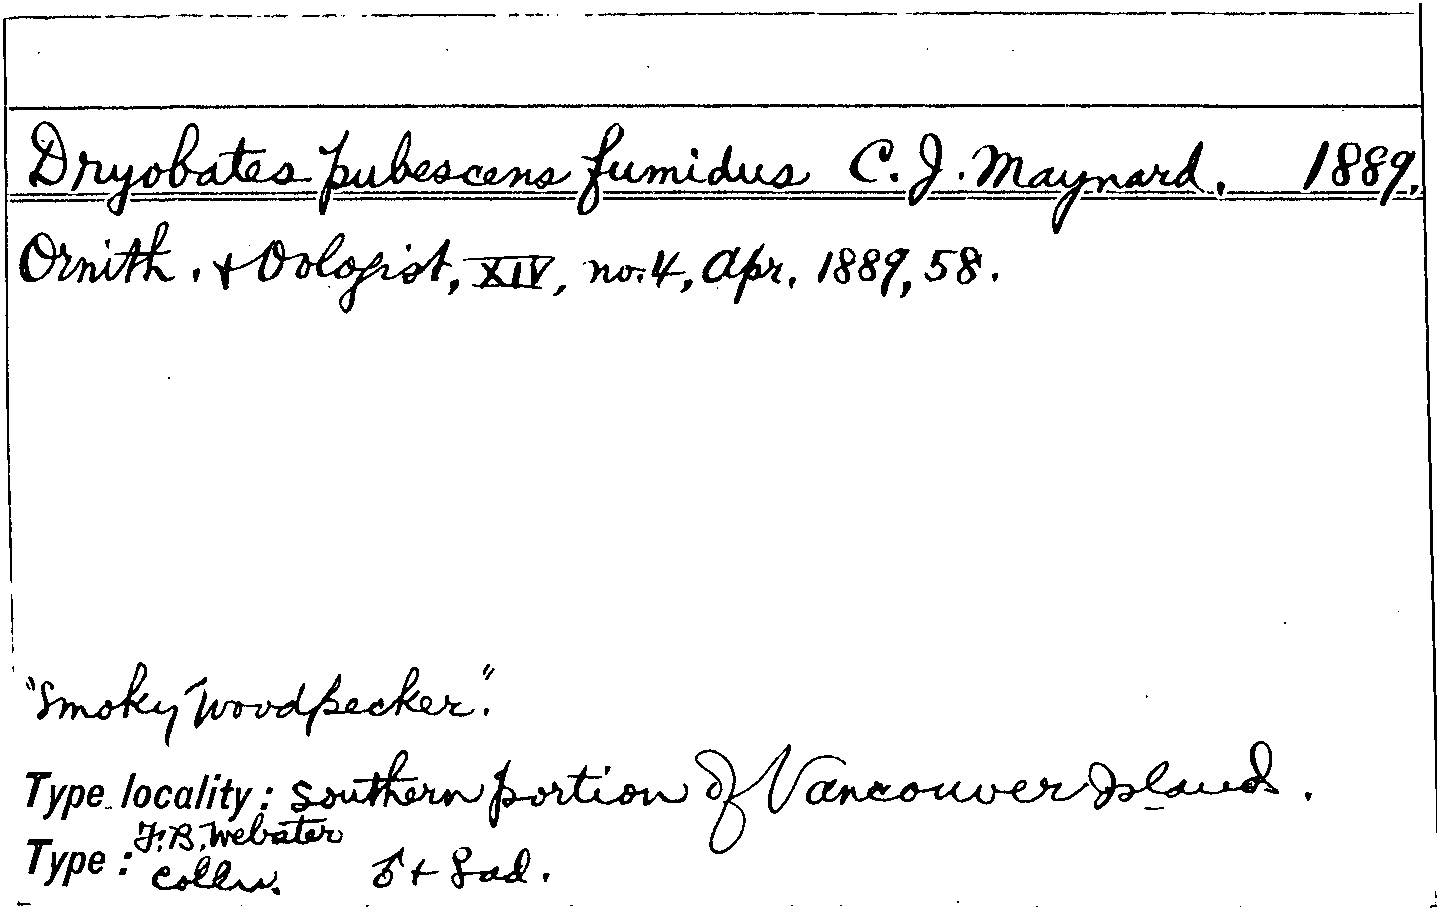 Dryobates pubescens fumidus C. J. Maynard. 1889.
Ornith. & Oologist, XIV, no. 4, Apr. 1889, 58.
"Smoky Woodpecker".
Type locality: Southern portion of Vancouver Island.
F. B. Webster
Type: Colln. ♂ + ♀ ad.